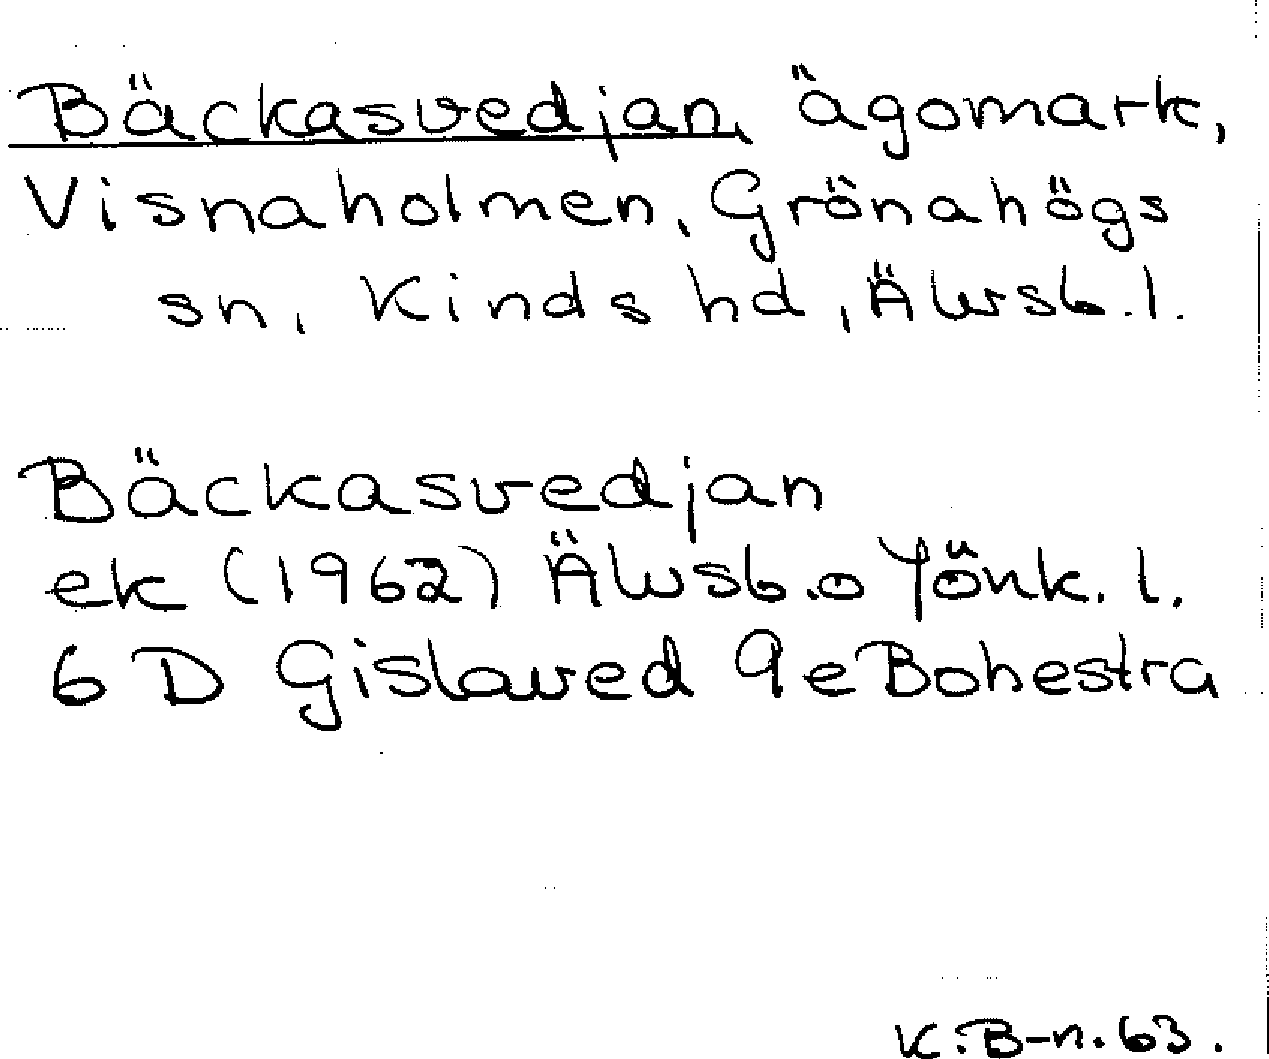 Bäckasvedjan, ägomark,
Visnaholmen, Grönahögs
sn, Kinds hd, Älvsb.l.
Bäckasvedjan
ek (1962) Älvsb.o Jönk.l.
6 D Gislaved 9e Bohestra
K.B-n.63.